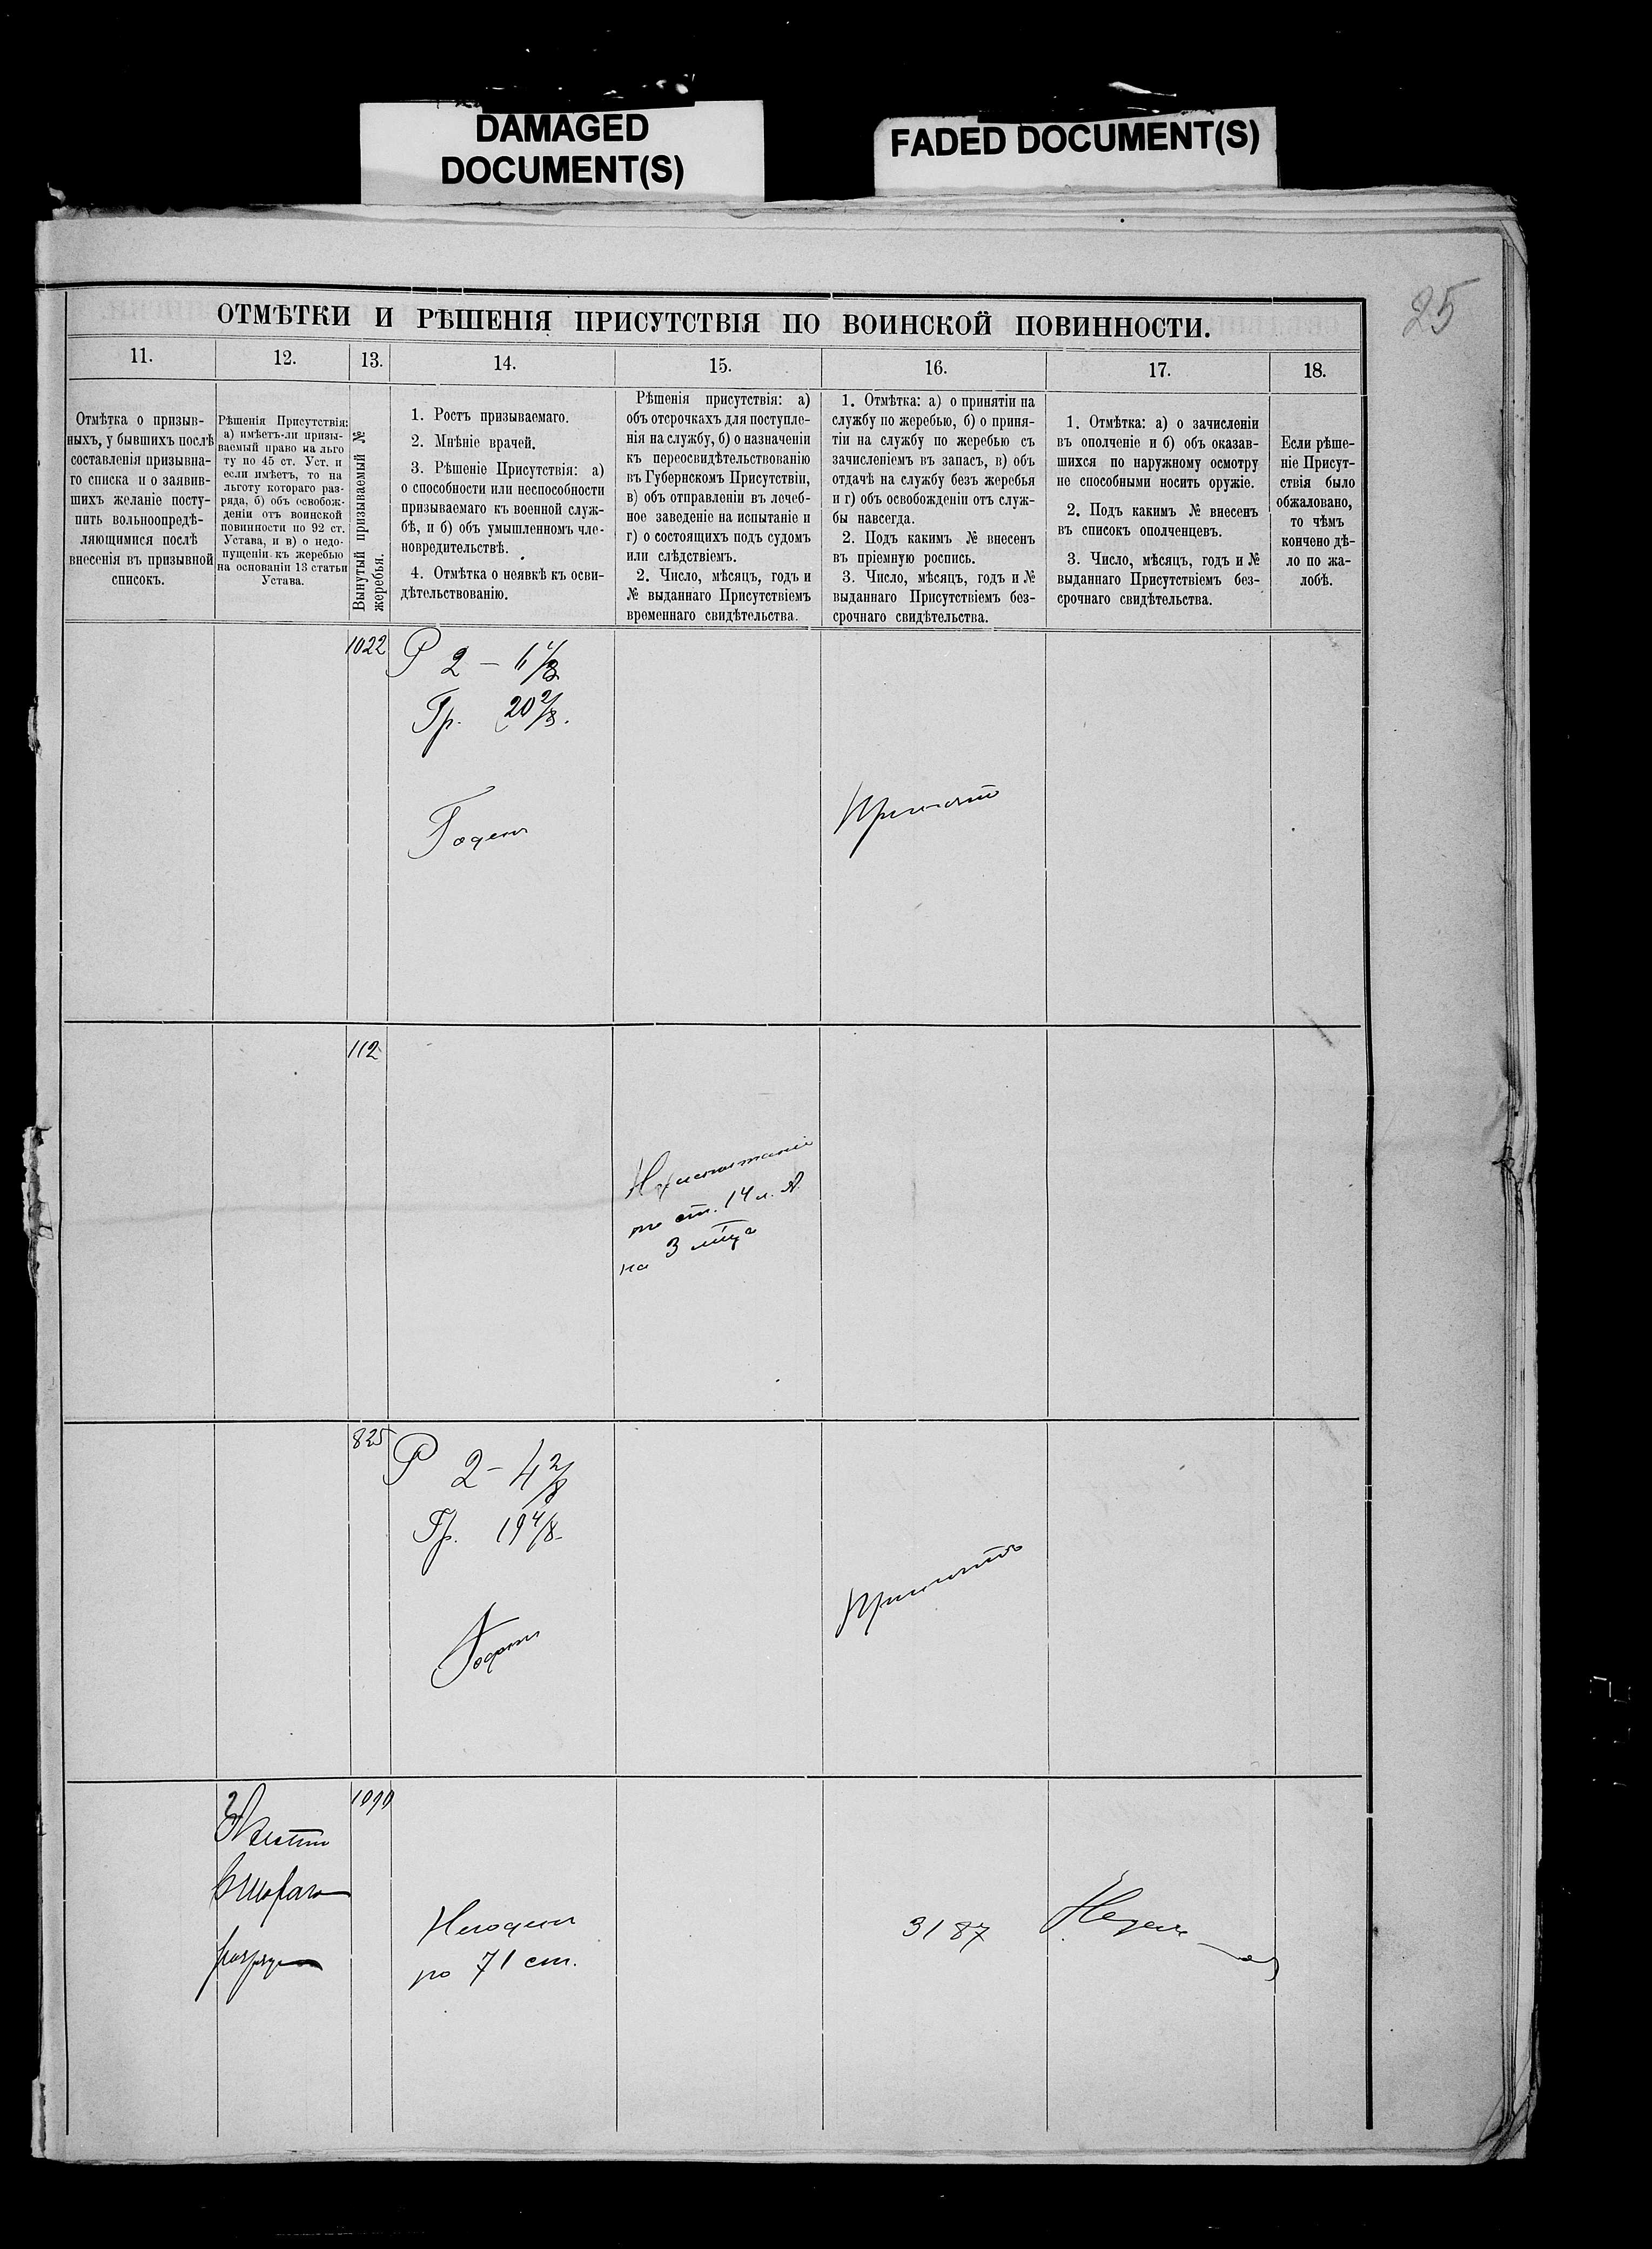 DAMAGED
DOCUMENT(S)
FADED DOCUMENT(S)
25
ОТМѢТКИ И РѢШЕНІЯ ПРИСУТСТВІЯ ПО ВОИНСКОЙ ПОВИННОСТИ.
11.
12.
13.
14.
15.
16.
17.
18.
Отмѣтка о призыв-
ныхъ, у бывшихъ послѣ
составленія призывна-
го списка и о заявив-
шихъ желаніе посту-
пить вольноопредѣ-
ляющимися послѣ
внесенія въ призывной
списокъ.
Рѣшенія Присутствія:
а) имѣетъ-ли призы-
ваемый право на льго
ту по 45 ст. Уст. и
если имѣетъ, то на
льготу котораго раз-
ряда, б) объ освобож-
деніи отъ воинской
повинности по 92 ст.
Устава, и в) о недо-
пущеніи къ жеребью
на основаніи 13 статьи
Устава.
Вынутый призываемый №
жеребья.
1. Ростъ призываемаго.
2. Мнѣніе врачей.
3. Рѣшеніе Присутствія: а)
о способности или неспособности
призываемаго къ военной служ-
бѣ, и б) объ умышленномъ чле-
новредительствѣ.
4. Отмѣтка о неявкѣ къ осви-
дѣтельствованію.
Рѣшенія присутствія: а)
объ отсрочкахъ для поступле-
нія на службу, б) о назначеніи
къ переосвидѣтельствованію
въ Губернскомъ Присутствіи,
в) объ отправленіи въ лечеб-
ное заведеніе на испытаніе и
г) о состоящихъ подъ судомъ
или слѣдствіемъ.
2. Число, мѣсяцъ, годъ и
№ выданнаго Присутствіемъ
временнаго свидѣтельства.
1. Отмѣтка: а) о принятіи на
службу по жеребью, б) о приня-
тіи на службу по жеребью съ
зачисленіемъ въ запасъ, в) объ
отдачѣ на службу безъ жеребья
и г) объ освобожденіи отъ служ-
бы навсегда.
2. Подъ какимъ № внесенъ
въ пріемную роспись.
3. Число, мѣсяцъ, годъ и №
выданнаго Присутствіемъ без-
срочнаго свидѣтельства.
1. Отмѣтка: а) о зачисленіи
въ ополченіе и б) объ оказав-
шихся по наружному осмотру
не способными носить оружіе.
2. Подъ какимъ № внесенъ
въ списокъ ополченцевъ.
3. Число, мѣсяцъ, годъ и №
выданнаго Присутствіемъ без-
срочнаго свидѣтельства.
Если рѣше-
ніе Присут-
ствія было
обжаловано,
то чѣмъ
кончено дѣ-
ло по жа-
лобѣ.
1022
Р 2 –
Гр. 20 2/8.
Годенъ
Принятъ
112
по ст. 14 л. А
на 3 мѣца
825
Р 2 – 4 2/8
Гр. 19 4/8
Годенъ
Принятъ
втораго
разряда
Негоденъ
по 71 ст.
3187